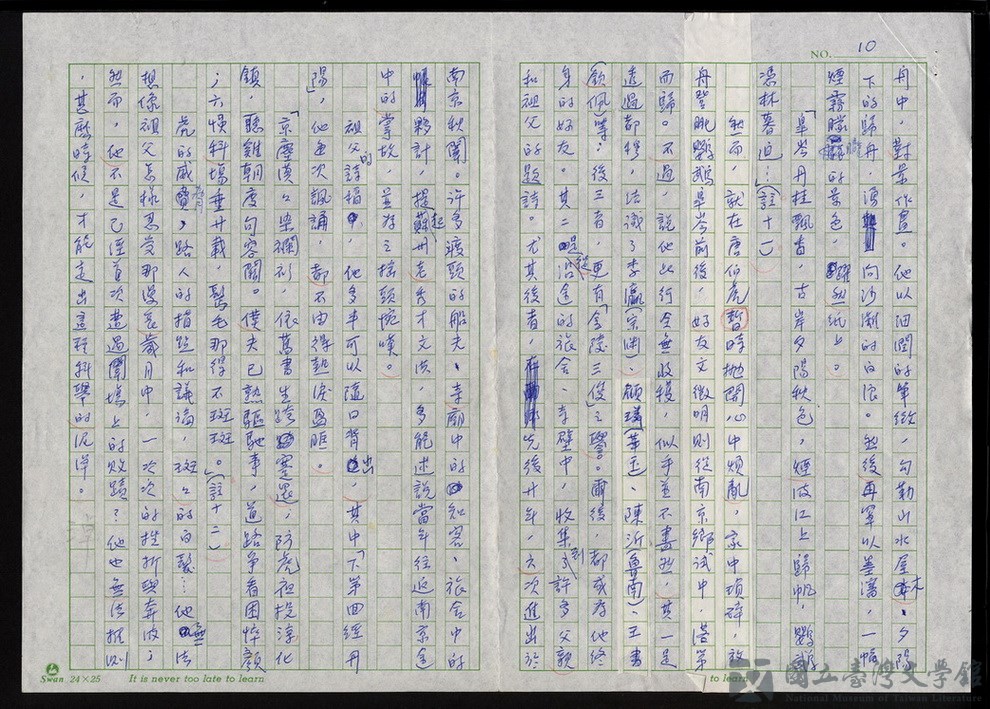 NO. 10
舟中，對景作畫。他以細潤的筆緻，勾勒山水屋木、夕陽
下的歸舟，湧向沙洲的白浪。然後再罩以墨瀋，一幅
煙霧朦朧的景色，躍然紙上。
「皐岑丹桂飄香，古岸夕陽秋色，煙波江上歸帆，鸚鵡
憑林暮迫…」（註十一）
然而，就在唐伯虎暫時拋開心中煩亂，家中瑣碎，放
舟登眺鸚鵡皐岑前後，好友文徵明則從南京鄉試中，落第
而歸。不過，說他此行全無收穫，似乎並不盡然，其一是
透過都穆，結識了李瀛（宗淵）、顧璘（華玉）、陳沂（魯南）、王韋
（欽佩）等；後三者，更有「金陵三俊」之譽。爾後，都成為他終
身的好友。其二是從沿途的旅舍、寺壁中，收集到許多父親
和祖父的題詩。尤其後者，先後廿年，六次進出於
南京秋闈。許多渡頭的船夫、寺廟中的知客、旅舍中的
夥計，提起蘇州老秀才文洪，多能述說當年往返南京途
中的掌故，並為之搖頭惋嘆。
祖父的詩稿，他多半可以隨口背出，其中「下第四經丹
陽」，他每次諷誦，都不由得熱淚盈眶。
「京塵漠漠染襴衫，依舊書生跨蹇還；防虎夜投淳化
鎮，聽雞朝度句容關。僕夫已熟驅馳事，道路爭看困悴顏
；六悞科場垂廿載，鬢毛那得不斑斑。」（註十二）
虎的威脅，路人的指點和議論，斑斑的白髮…他無法
想像祖父怎樣忍受那漫長歲月中，一次次的挫折與奔波；
然而，他不是已經首次遭遇闈場上的敗蹟？他也無法推測
，甚麼時候，才能走出這種科舉的泥淖。
Swan 24×25 It is never too late to learn
to learn
國立臺灣文學館
National Museum of Taiwan Literature